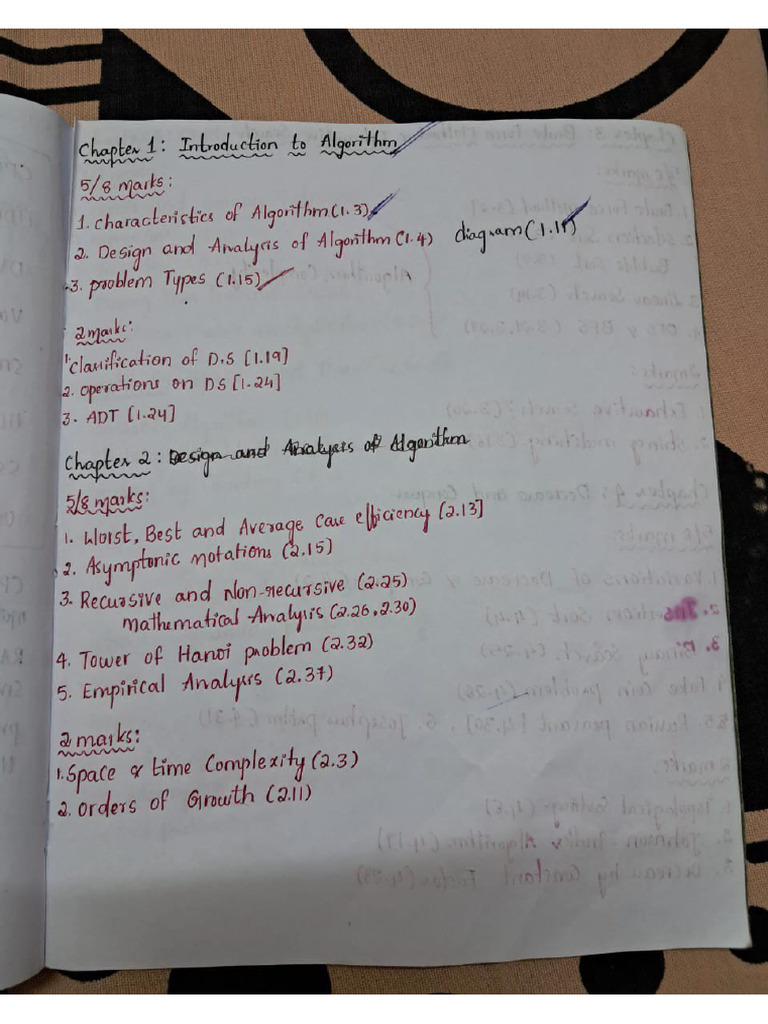 Chapter 1: Introduction to Algorithm
5/8 marks:
1. Characteristics of Algorithm (1.3)
2. Design and Analysis of Algorithm (1.4) diagram (1.11)
3. problem Types (1.15)
2 marks:
1. Classification of D.S [1.19]
2. operations on DS [1.24]
3. ADT [1.24]
Chapter 2: Design and Analysis of Algorithm
5/8 marks:
1. Worst, Best and Average Case efficiency [2.13]
2. Asymptonic notations (2.15)
3. Recursive and Non-recursive (2.25)
mathematical Analysis (2.26, 2.30)
4. Tower of Hanoi problem (2.32)
5. Empirical Analysis (2.37)
2 marks:
1. Space & time Complexity (2.3)
2. Orders of Growth (2.11)